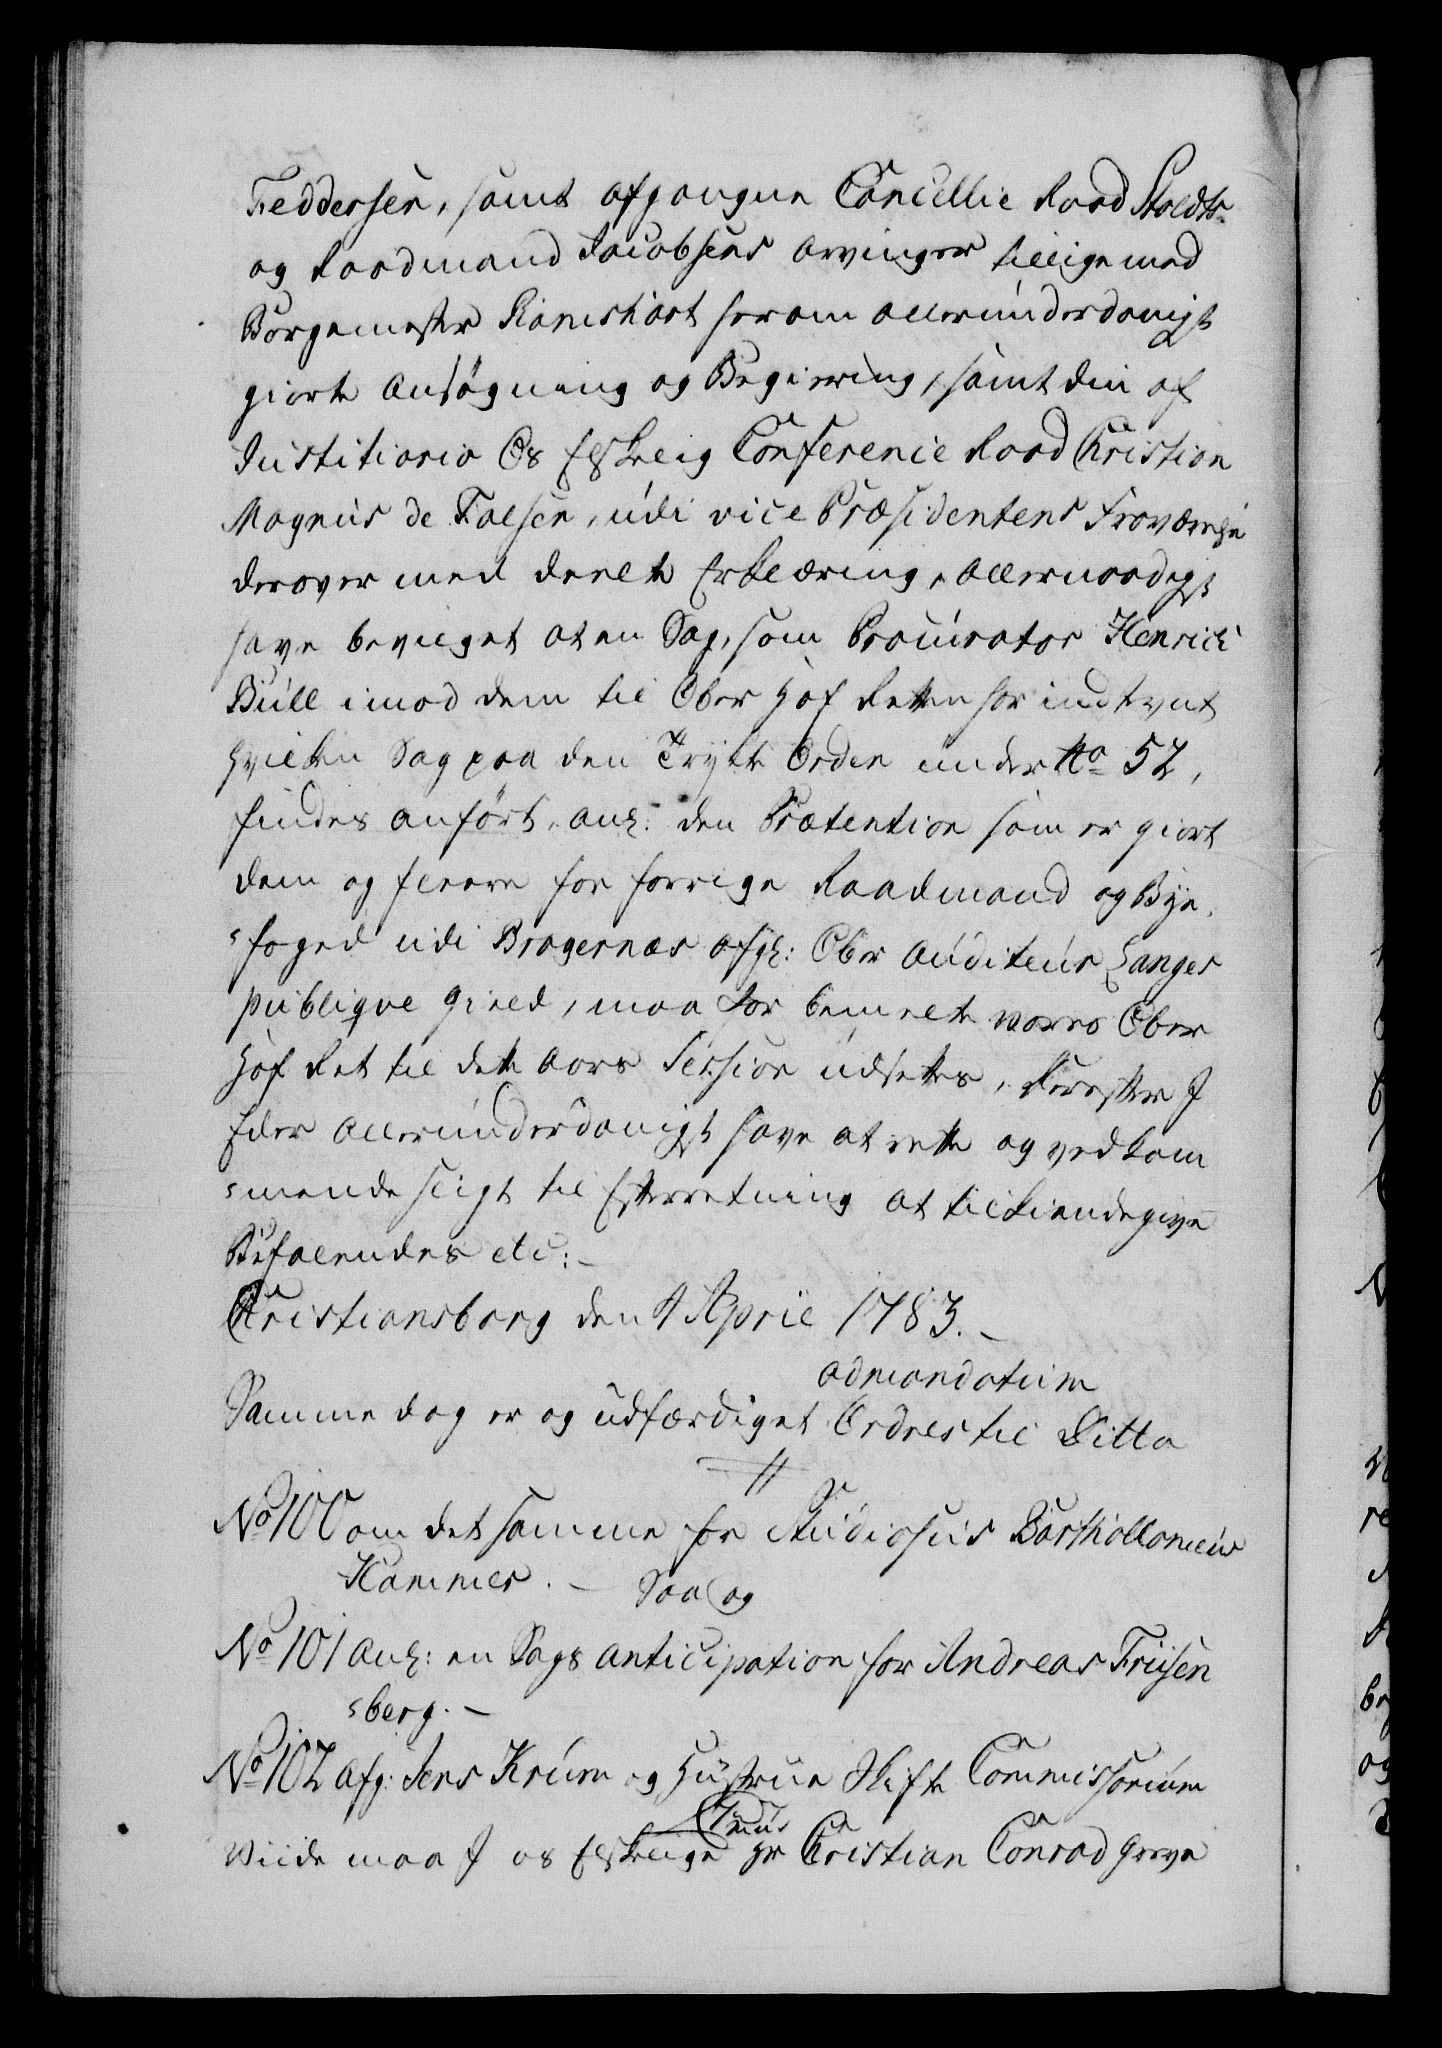 Feddersen, samt afgangne Cancellie Raad Stoltz-
og Raadmand Jacobsens Arvinger tilligemed
Borgemester Ramshart herom allerunderdanigst
giorte Ansøgning og Begiering, samt den af
Justitiario Os Elskelig Conference Raad Christian
Magnus de Falsen, udi vice Præsidentens Fraværelse
derover meddeelte Erklæring, Allernaadigst
have bevilget at en Sag, som Procurator Henrich
Bull imod dem til Ober Hof Retten har indstevnt
hvilken Sag paa den Trykte Orden under No 52,
findes anført, anl: den Prætention som er giort
dem og fleere for forrige Raadmand og Bye-
foged udi Bragernæs afgl: Ober Auditeur Langes
publique Gield, maa for bemelte vores Ober
Hof Ret til dette Aars Session udsettes, Derefter I
Eder Allerunderdanigst have at rette og vedkom
mende sligt til Efterretning at tilkiendegive
Befalendes etc:
Christiansborg den 4 April 1783.
ad mandatum
Samme dag er og udfærdiget Ordres til Ditto
No 100 om det samme for Studiosus Barthollomeus
Hammer. Saa og
No 101 anl: en Sags anticipation for Andreas Friisen
berg.
No 102 Afg: Jens Krum og Hustrue Skifte Commissorium
Viide maa I os Elskelige Hr Christian Conrad Greve